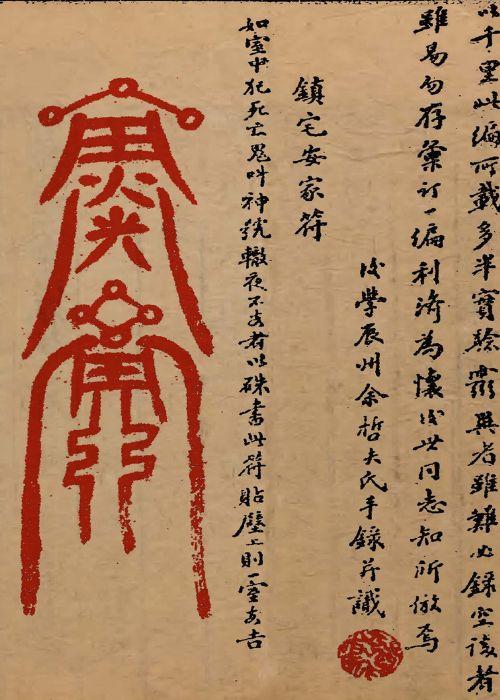 以千里此編所載多半實驗靈異者雖難必錄空談者
雖易勿存彙訂一編利濟為懷後世同志知所倣焉
後學辰州余哲夫氏手錄并識
鎮宅安家符
如室中犯死亡鬼叫神號轍夜不安者以硃書此符貼壁上則一室安吉